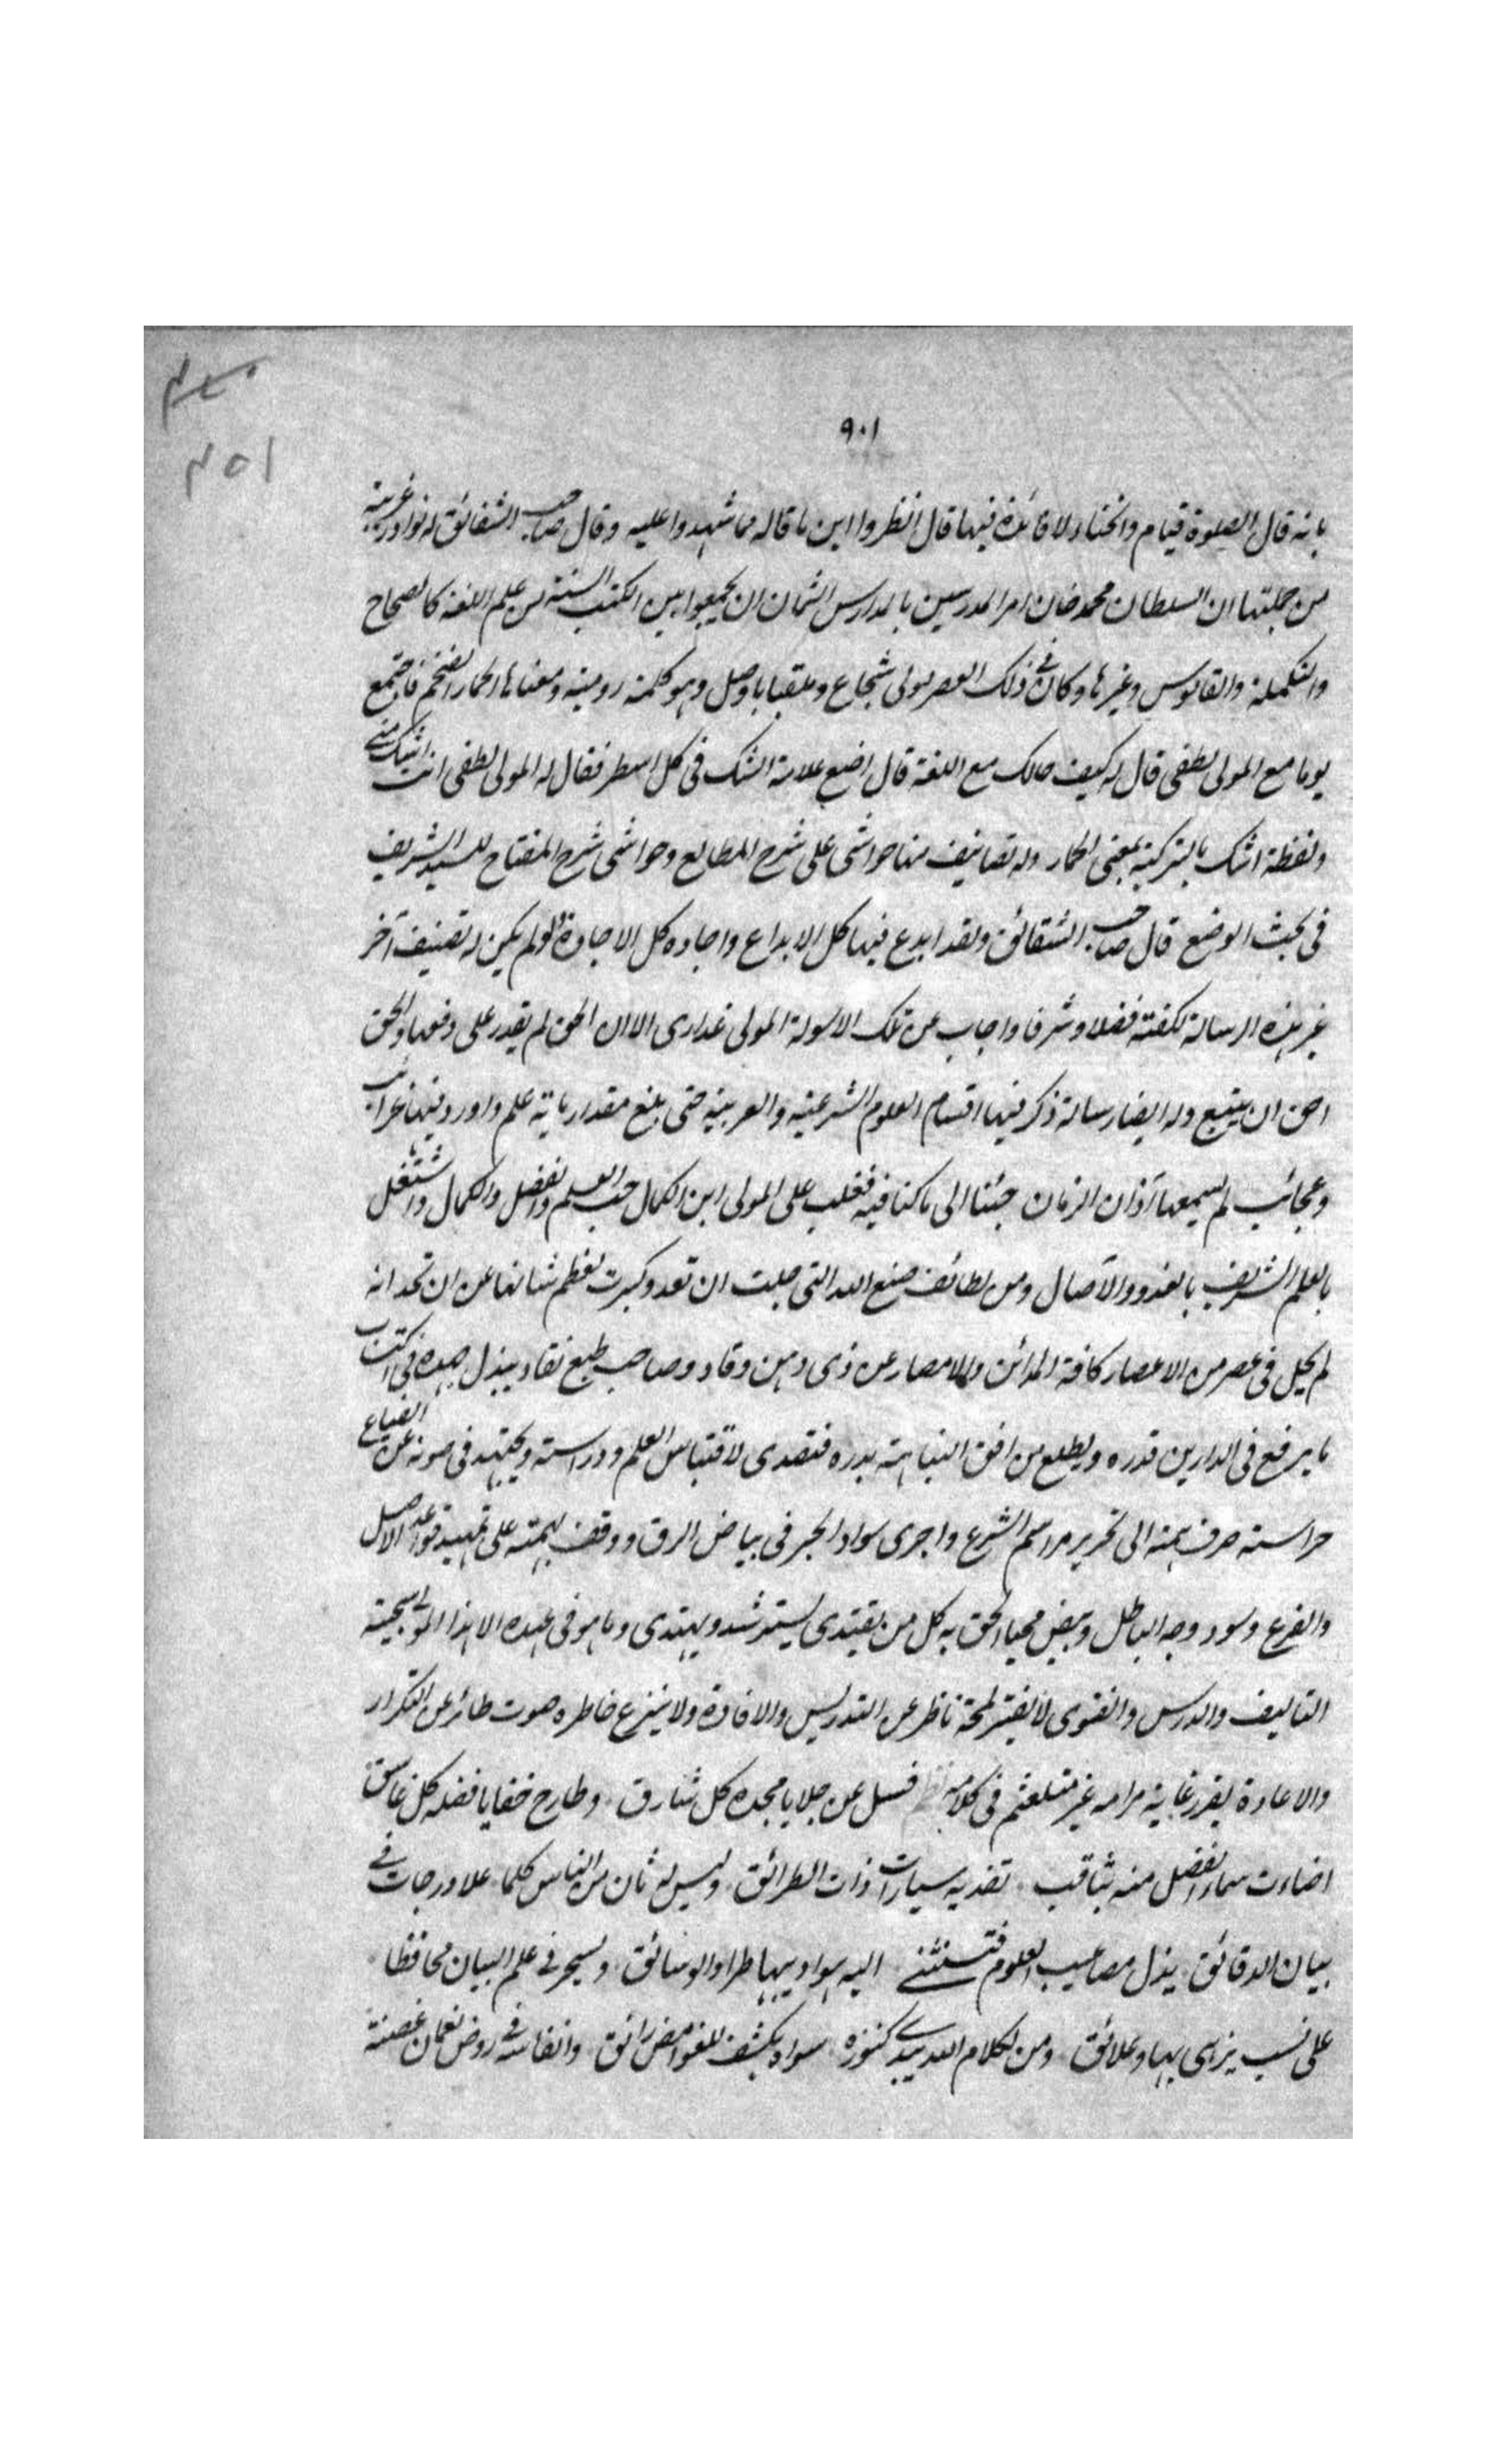 ٤٥٠
٤٥١
٩٠١
بانه قال الصلوة قيام وانحناء لا فائدة فيها قال انظروا اين ما قاله مما شهدوا عليه وقال صاحب الشقائق له نوادر غريبة
من جملتها ان السلطان محمد خان امر المدرسين بالمدارس الثمان ان يجمعوا بين الكتب الستة من علم اللغة كالصحاح
والتكملة والقاموس وغيرها وكان فى ذلك العصر مولى شجاع وملقبا باوصل وهو كلمة رومية ومعناها الحمار الضخم فاجتمع
يوما مع المولى لطفى قال له كيف حالك مع اللغة قال اضع علامة الشك فى كل اسطر فقال له المولى لطفى انت اشك منى
ولفظة اشك بالتركية بمعنى الحمار وله تصانيف منها حواشى على شرح المطالع وحواشى شرح المفتاح للسيد الشريف
فى بحث الوضع قال صاحب الشقائق ولقد ابدع فيها كل الابداع واجاده كل الاجادة ولو لم يكن له تصنيف آخر
غير هذه الرسالة لكفته فضلا وشرفا واجاب عن تلك الاسولة المولى عذارى الا ان الحق لم يقدر على دفعها والحق
احق ان يتبع وله ايضا رسالة ذكر فيها اقسام العلوم الشرعية والعربية حتى بلغ مقدار ماية علم واورد فيها غرائب
وعجائب لم يسمعها آذان الزمان جئنا الى ما كنا فيه فغلب على المولى ابن الكمال حب العلم والفضل والكمال واشتغل
بالعلم الشريف بالغدو والآصال ومن لطائف صنع الله التى جلت ان تعد وكبرت لعظم شانها عن ان تحد انه
لم يخل فى عصر من الاعصار كافة المدائن والامصار عن ذى ذهن وقاد وصاحب طبع نقاد يبذل جهده فى اكتساب
ما يرفع فى الدارين قدره ويطلع من افق النباهة بدره فتصدى لاقتباس العلم ودراسته ويجتهد فى صونه عن الضياع
حراسته صرف همته الى تحرير مراسم الشرع واجرى سواد الحبر فى بياض الرق ووقف همته على تمهيد قواعد الاصل
والفرع وسود وجه الباطل وبيض محيا الحق به كل من يقتدى يسترشد ويهتدى وما هو فى عهده الا هذا المولى سجيته
التاليف والدرس والفتوى لا يفتر لمحة ناظر عن التدريس والافادة ولا ينزع خاطره صوت طائر عن التكرار
والاعادة يقرر غاية مرامه غير متلعثم فى كلامه نظم فسل عن جلايا مجده كل شارق وطارح خفايا فضله كل غاسق
اضاءت سماء الفضل منه بثاقب تفديه سيارات ذات الطرائق وليس له ثان من الناس كلما علا درجات فى
بيان الدقائق يذل مصاعيب العلوم فتنثنى اليه هواديها طرا والوسائق ويسحر فى علم البيان محافظا
على نسب يزهى بها وعلائق ومن لكلام الله يبدى كنوزه سواه بكشف للغوامض رائق وانفاسه فى روض نعمان غصنة